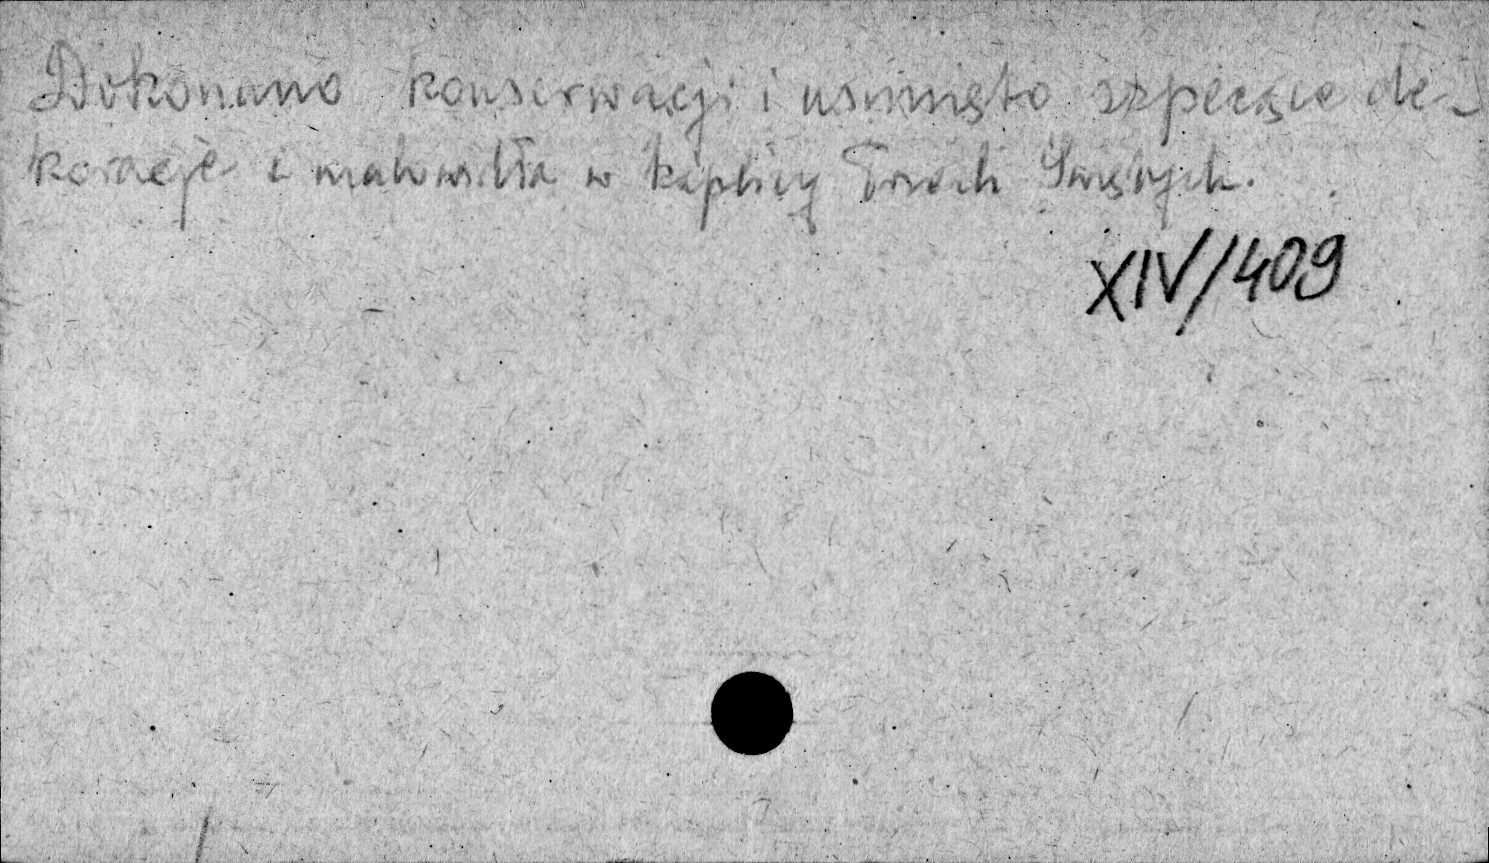 Dokonano konserwacji i usunięto szpecące de-
koracje i malowidła w kaplicy Trzech Świętych.
XIV/409